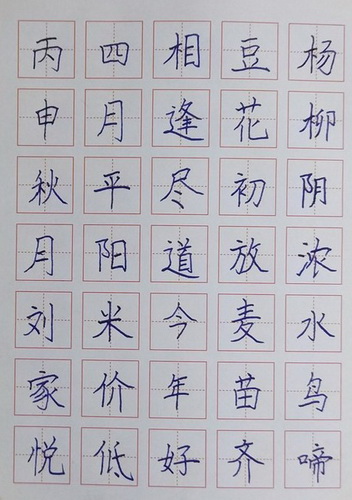 杨柳阴浓水鸟啼
豆花初放麦苗齐
相逢尽道今年好
四月平阳米价低
丙申秋月刘家悦